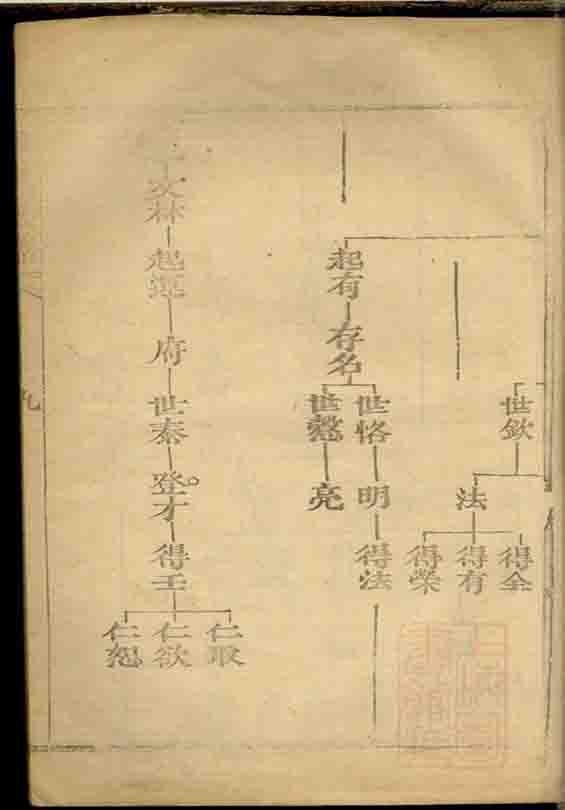 世欽
法
得全
得有
得榮
起有
存名
世恪
明
得法
世懃
亮
文林
起蓮
府
世泰
登才
得壬
仁取
仁欲
仁恕
九